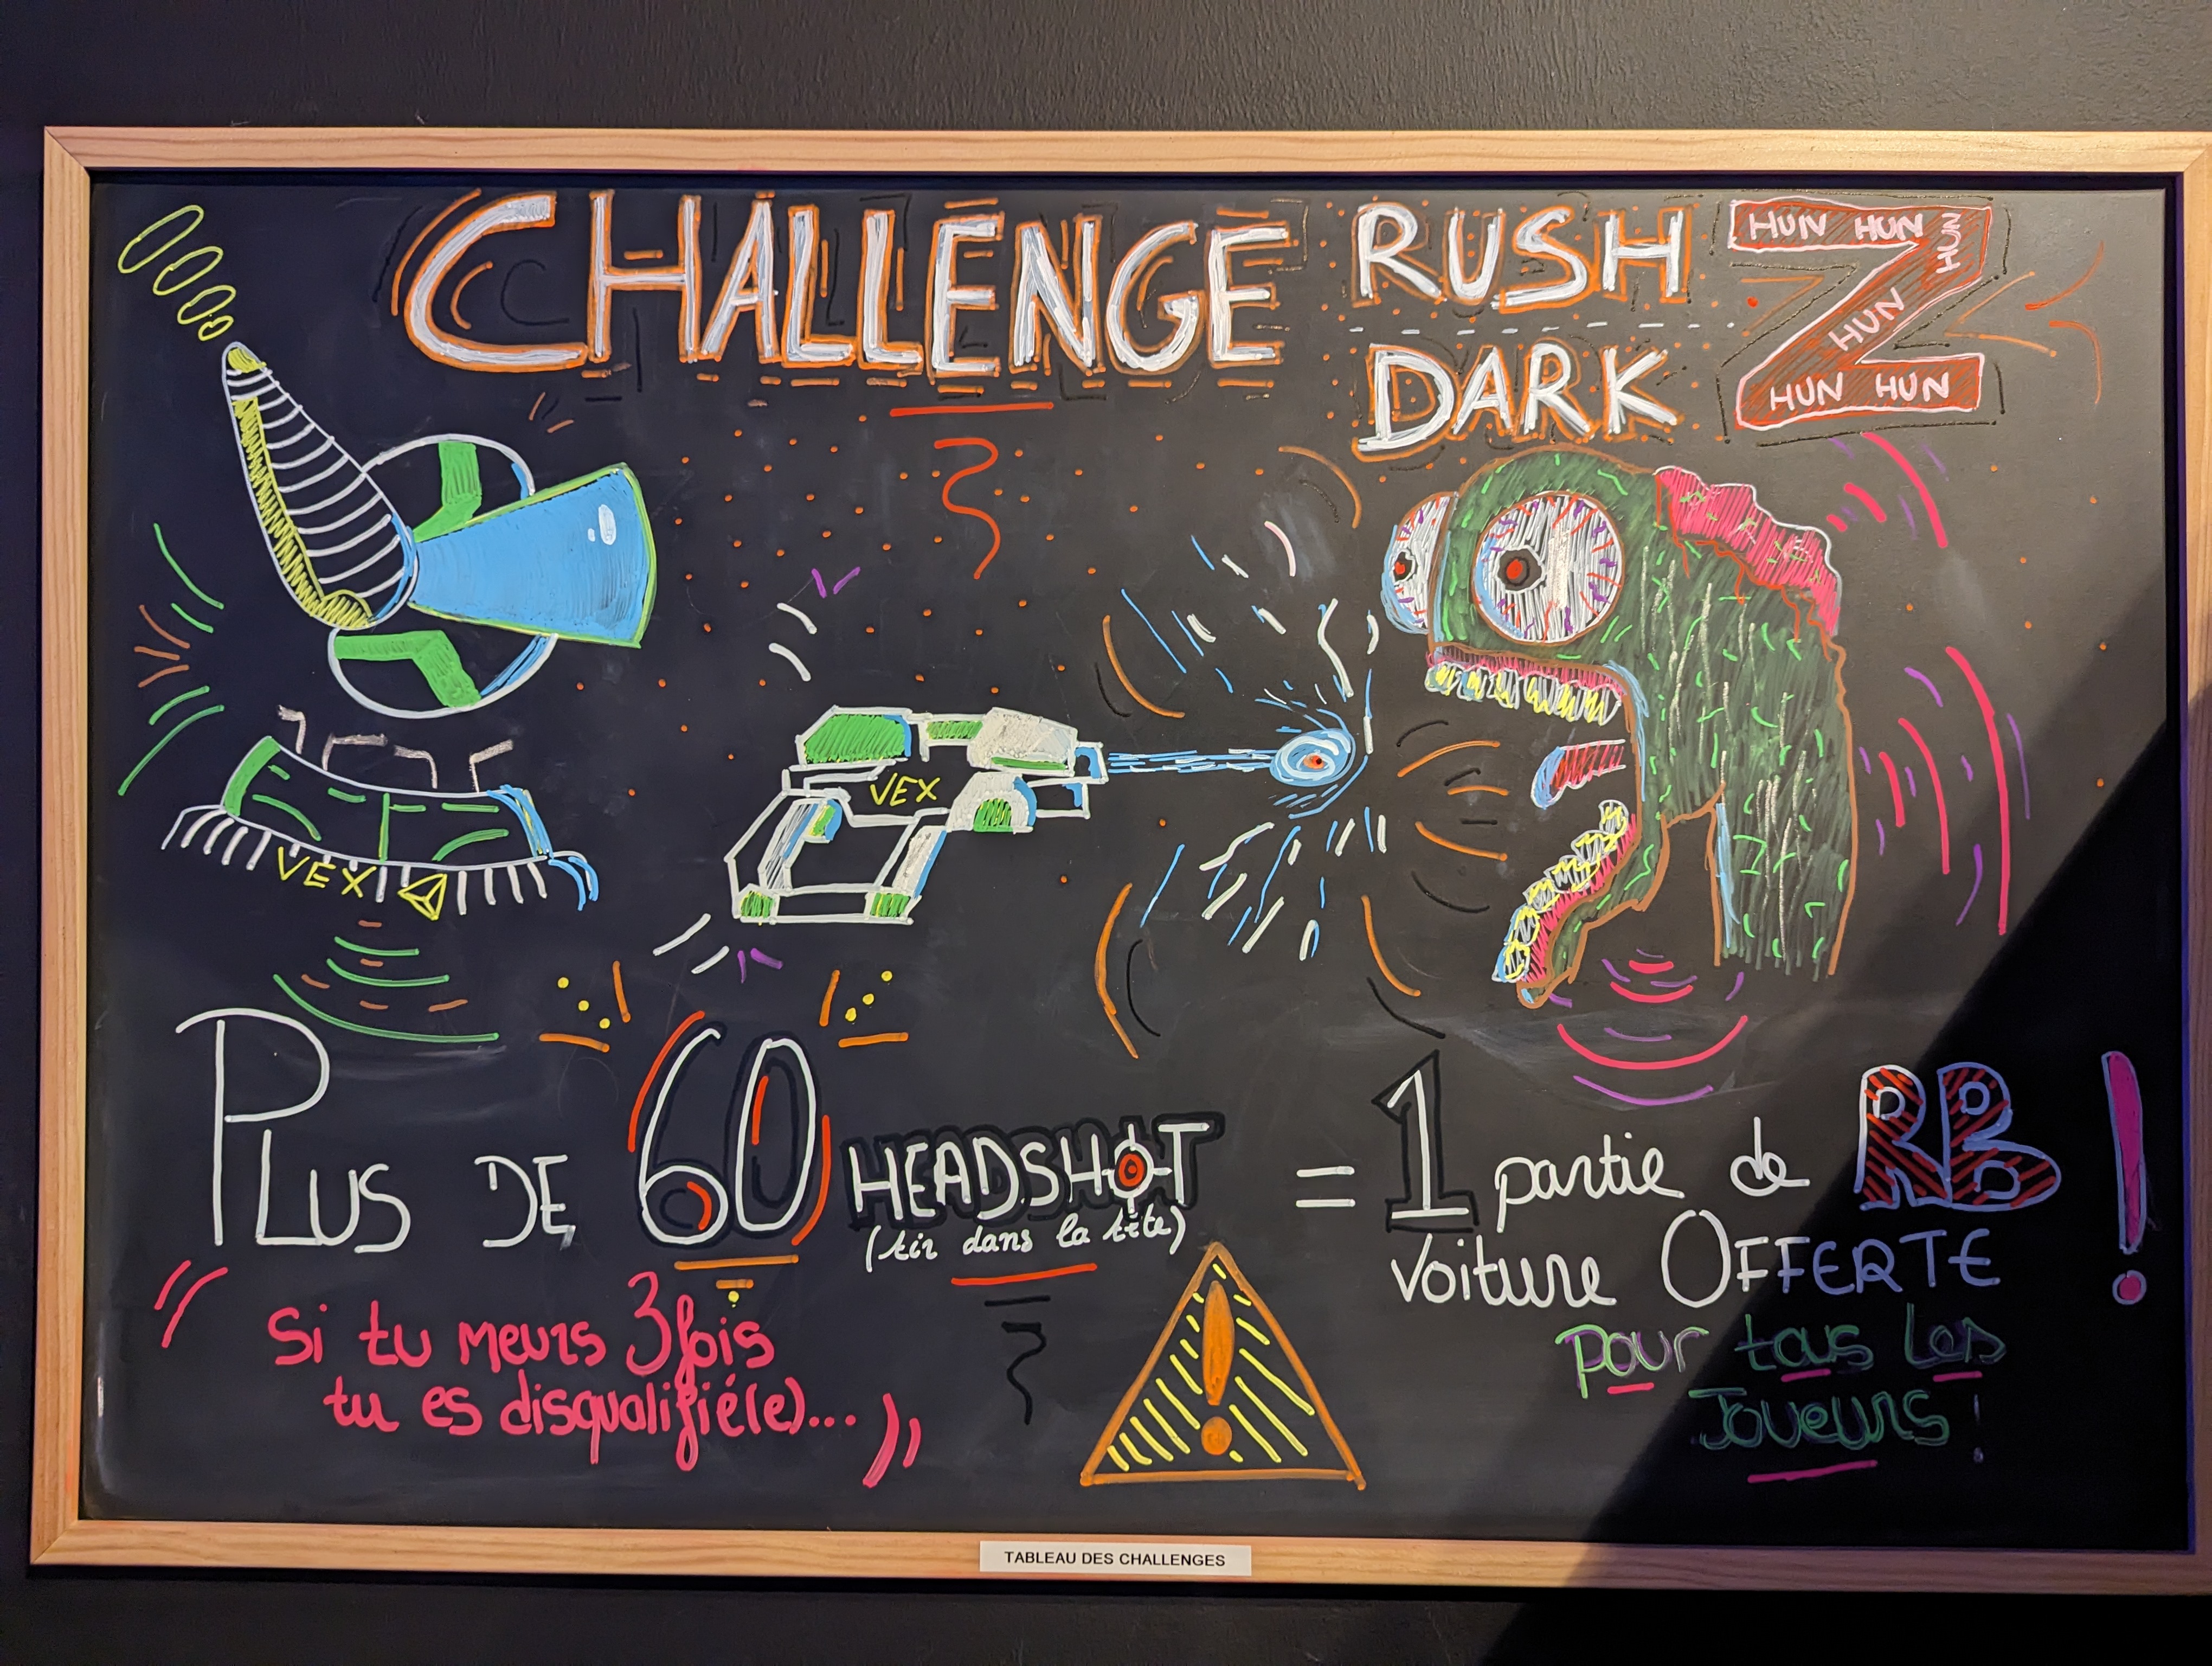 CHALLENGE RUSH
DARK
Z
HUN HUN HUN
HUN
HUN HUN
VEX
VEX
PLUS DE 60 HEADSHOT
(tir dans la tête)
= 1 partie de RB
Voiture OFFERTE !
pour tous les
Joueurs !
" Si tu meurs 3 fois
tu es disqualifié(e)... "
!
TABLEAU DES CHALLENGES